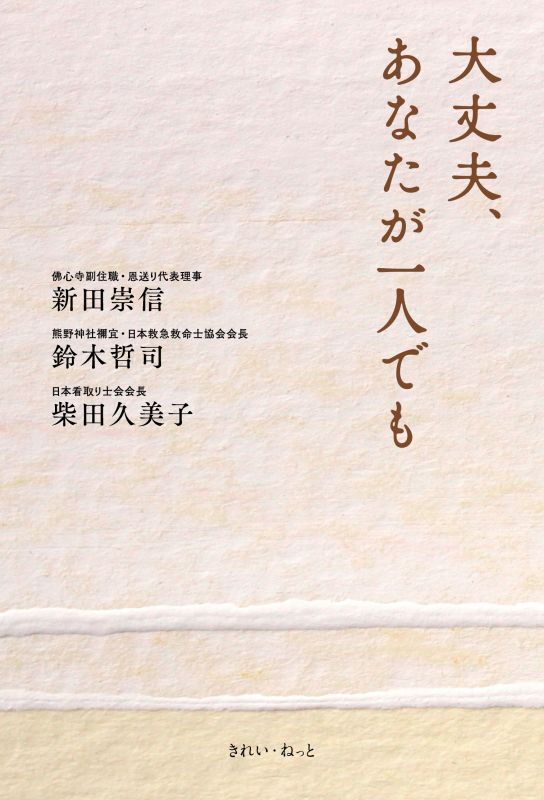 大丈夫、
あなたが一人でも
佛心寺副住職・恩送り代表理事
新田崇信
熊野神社禰宜・日本救急救命士協会会長
鈴木哲司
日本看取り士会会長
柴田久美子
きれい・ねっと